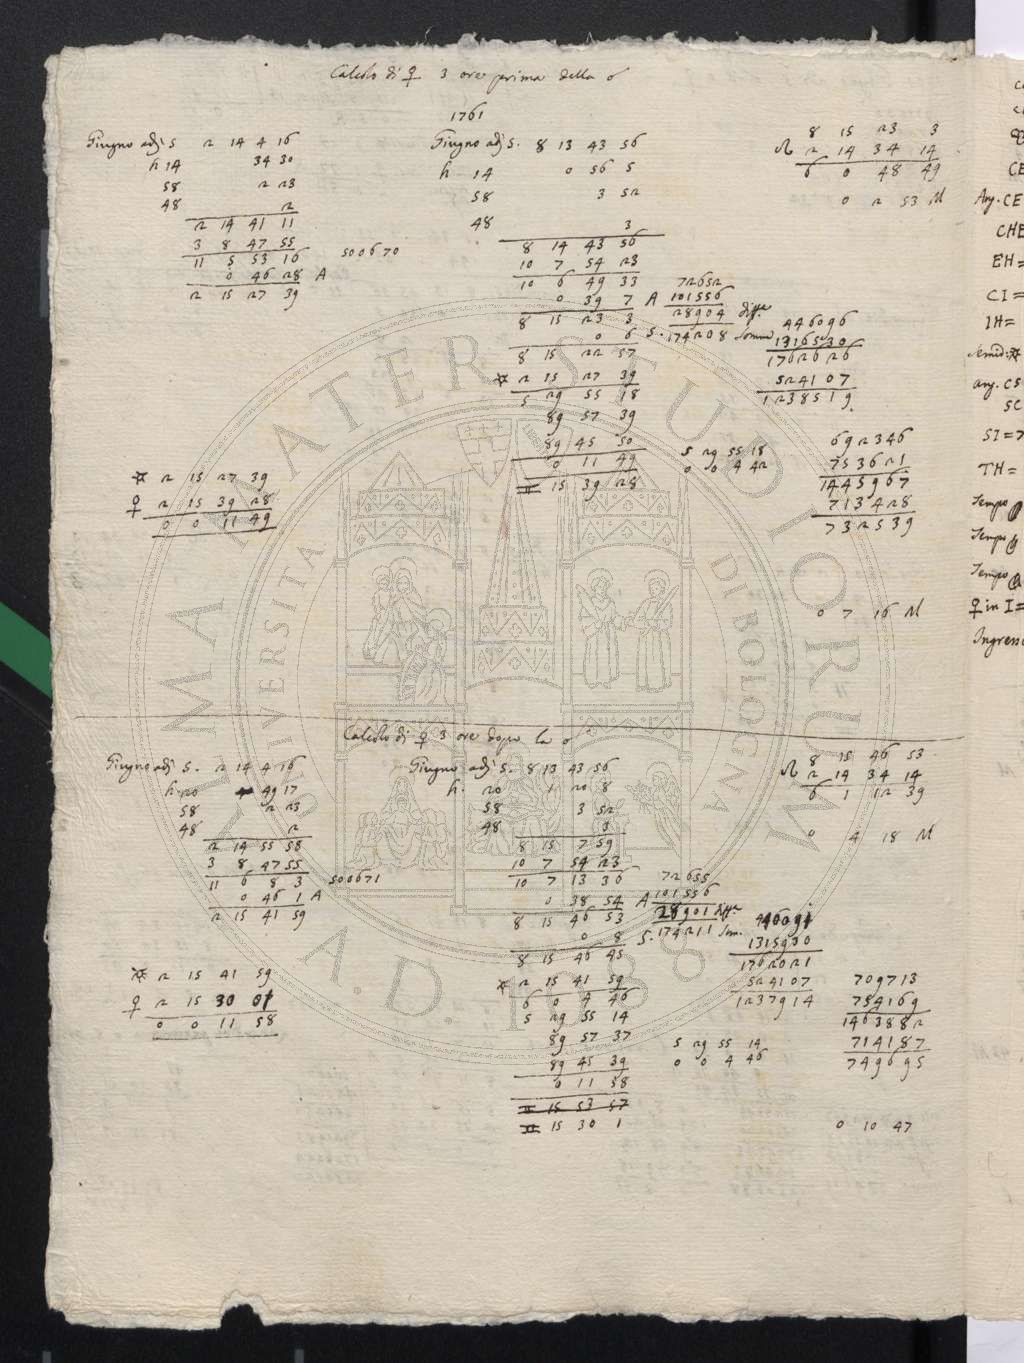 Calcolo di ♀ 3 ore prima della ☌
1761
Giugno adì 5 2 14 4 16
h 14 34 30
58 2 23
48 2
2 14 41 11
3 8 47 55
11 5 53 16 500670
0 46 28 A
2 15 27 39
☆ 2 15 27 39
♀ 2 15 39 28
0 0 11 49
Giugno adì 5. 8 13 43 56
h 14 0 56 5
58 3 52
48 3
8 14 43 56
10 7 54 23
10 6 49 33
0 39 7 A
8 15 23 3
0 6 S.
8 15 22 57
☆ 2 15 27 39
5 29 55 18
89 57 39
89 45 50
0 11 49
♊ 15 39 28
72652
101556
28904 diffa.
174208 somma
8 15 23 3
☊ 2 14 34 14
6 0 48 49
0 2 53 M
446096
1316530
1762626
524107
1238519.
5 29 55 18
0 0 4 42
692346
753621
1445967
713428
732539
0 7 16 M
Calcolo di ♀ 3 ore dopo la ☌
Giugno adì 5. 2 14 4 16
h. 20 49 17
58 2 23
48 2
2 14 55 58
3 8 47 55
11 6 8 3 500671
0 46 1 A
2 15 41 59
☆ 2 15 41 59
♀ 2 15 30 01
0 0 11 58
Giugno adì 5. 8 13 43 56
h. 20 1 20 8
58 3 52
48 3
8 15 7 59
10 7 54 23
10 7 13 36
0 38 54 A
8 15 46 53
0 8 S.
8 15 46 45
☆ 2 15 41 59
6 0 4 46
5 29 55 14
89 57 37
89 45 39
0 11 58
♊ 15 53 57
♊ 15 30 1
72655
101556
28901 diffa.
174211 som.
8 15 46 53
☊ 2 14 34 14
6 1 12 39
0 4 18 M
1315930
1762021
524107
1237914
5 29 55 14
0 0 4 46
709713
754169
1463882
714187
749695
0 10 47
CE
Ang. CE
CHE
EH=
CI=
IH=
Semid: ☆
ang. CS
SC
SI=7
TH=
Tempo
Tempo
Tempo
♀ in I=
Ingress
ALMA MATER STUDIORUM
UNIVERSITÀ DI BOLOGNA
A.D. 1088